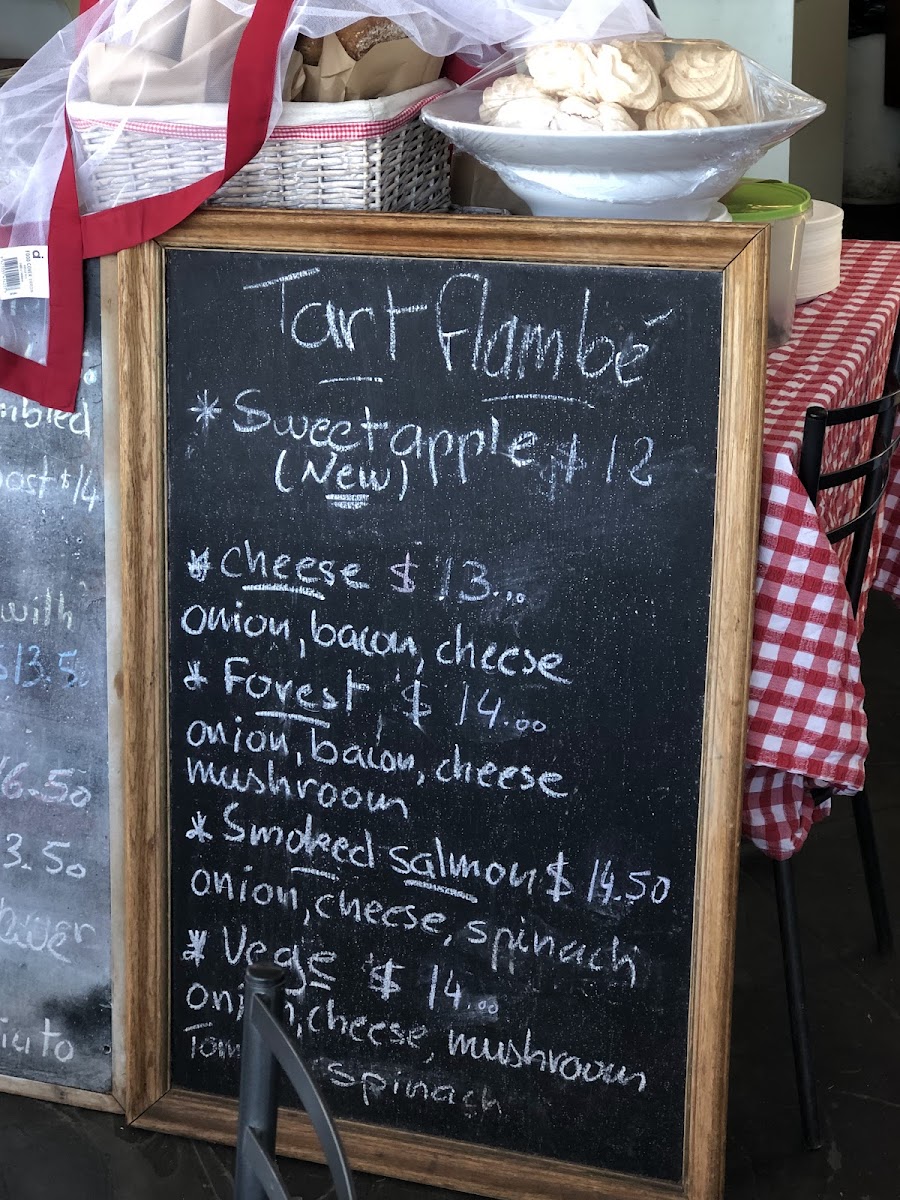 Tart flambé
* Sweet apple $12
(New)
* Cheese $13.00
onion, bacon, cheese
* Forest $14.00
onion, bacon, cheese
mushroom
* Smoked salmon $14.50
onion, cheese, spinach
* Vege $14.00
cheese, mushroom
spinach
$14
with
$13.50
6.50
3.50